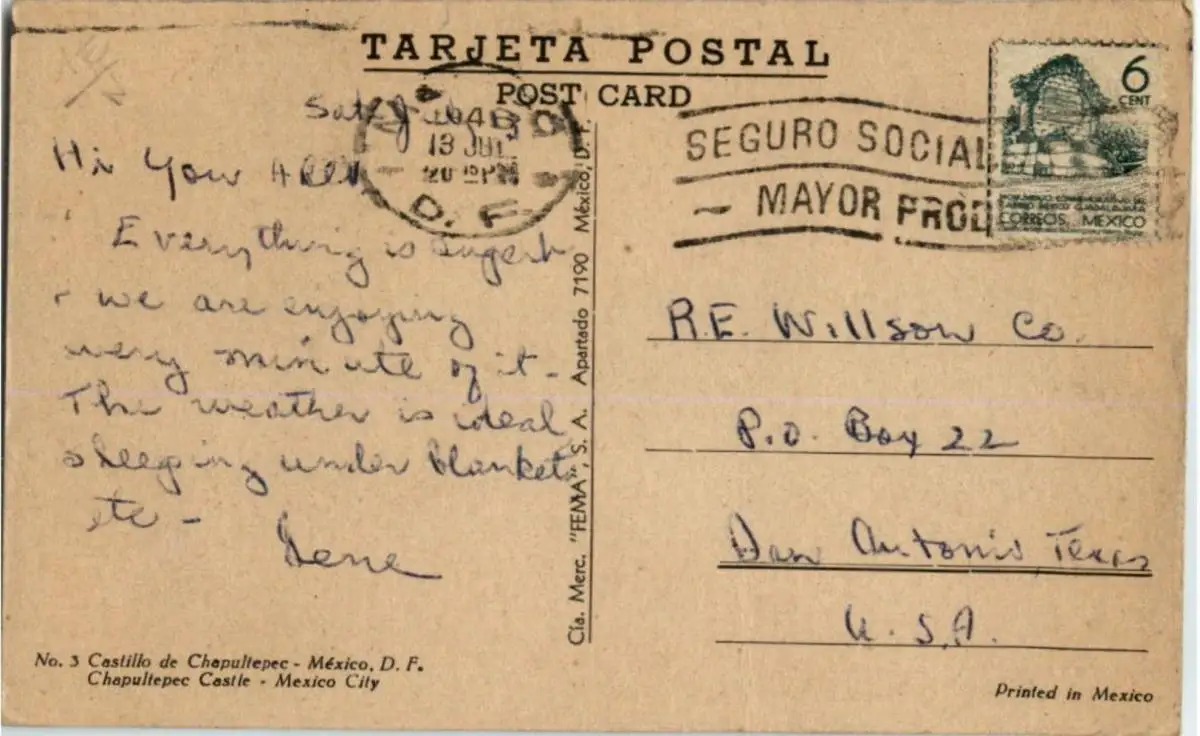 TARJETA POSTAL
POST CARD
Sat
Hi You All
Everything is superb
+ we are enjoying
every minute of it -
The weather is ideal
sleeping under blankets
etc -
Gene
No. 3 Castillo de Chapultepec - México, D. F.
Chapultepec Castle - Mexico City
Cía. Merc. "FEMA", S. A. Apartado 7190 México, D. F.
13 JUL
D. F.
SEGURO SOCIAL
MAYOR PROD
6
CENT
CORREOS MEXICO
R.E. Willson Co.
P.O. Box 22
San Antonio Texas
U.S.A.
Printed in Mexico